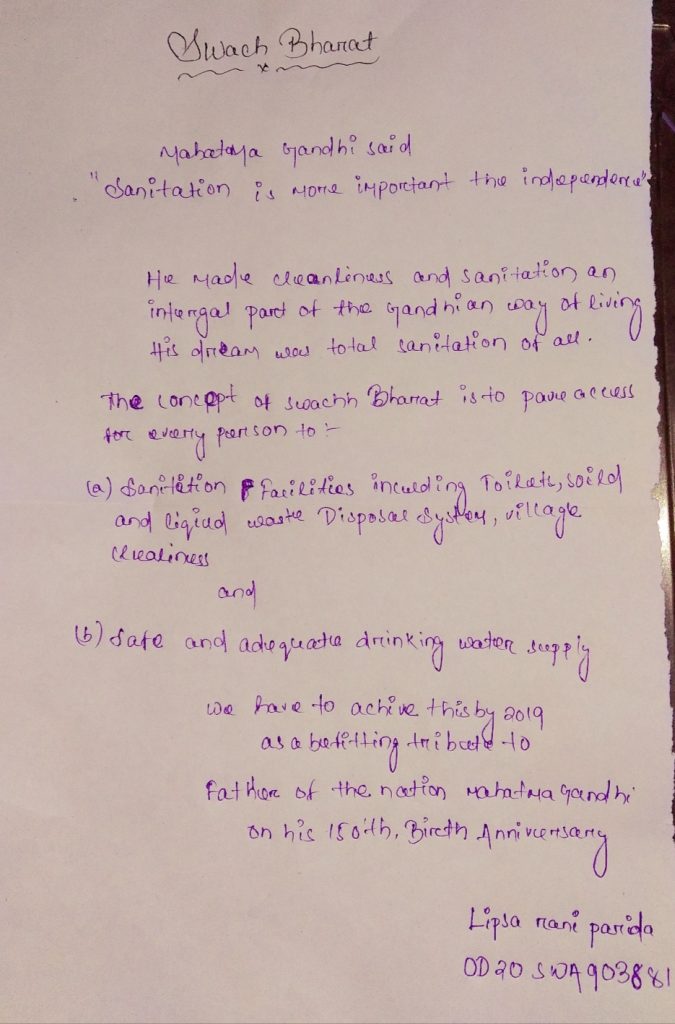 Swach Bharat
Mahatma Gandhi said
"Sanitation is more important the independence"
He made cleanliness and sanitation an
intergal part of the Gandhian way of living
His dream was total sanitation of all.
The concept of swachh Bharat is to pave access
for every person to :-
(a) Sanitation Facilities including Toilets, soild
and liqiud waste Disposal System, village
clealiness
and
(b) Safe and adequate drinking water supply
we have to achive this by 2019
as a befitting tribute to
Father of the nation Mahatma Gandhi
on his 150th, Birth Anniversary
Lipsa rani parida
OD20SWA903881